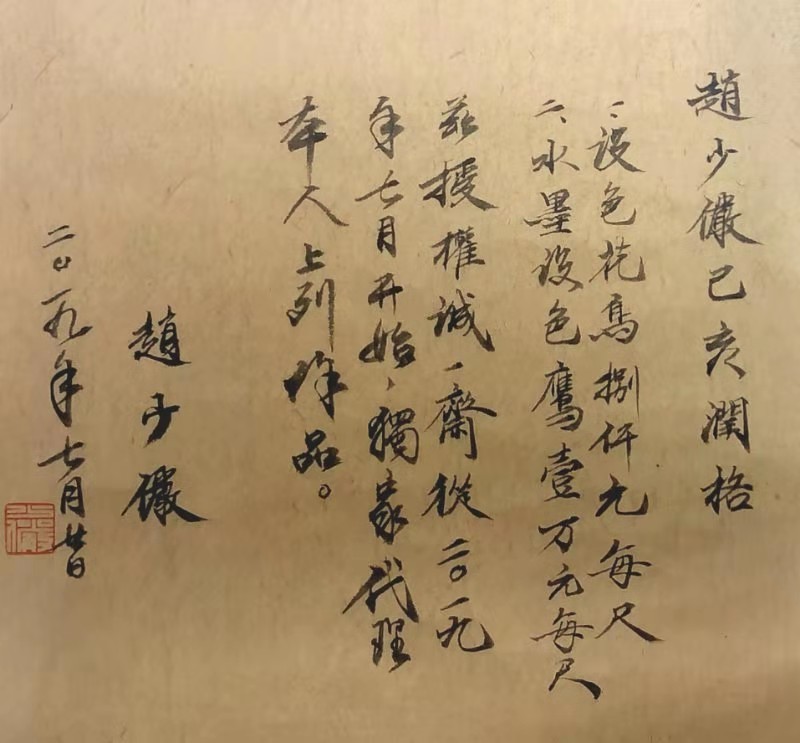 趙少儼己亥潤格
一、设色花鳥捌仟元每尺
二、水墨设色鷹壹万元每尺
茲授權诚一齋從二〇一九
年七月开始，獨家代理
本人上列作品。
趙少儼
二〇一九年七月廿日